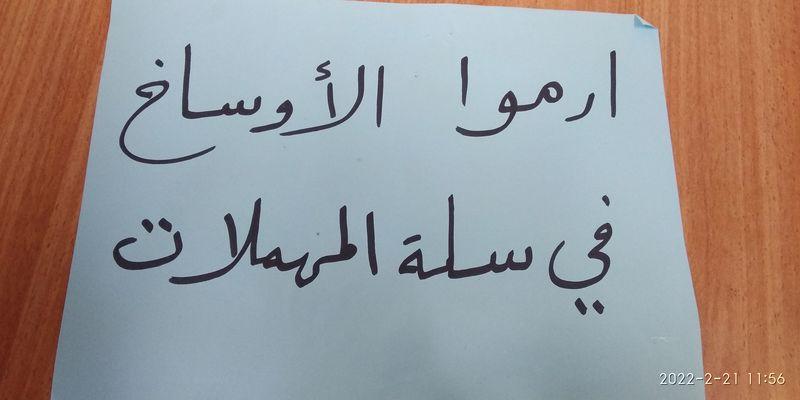 ارموا الأوساخ
في سلة المهملات
2022-2-21 11:56